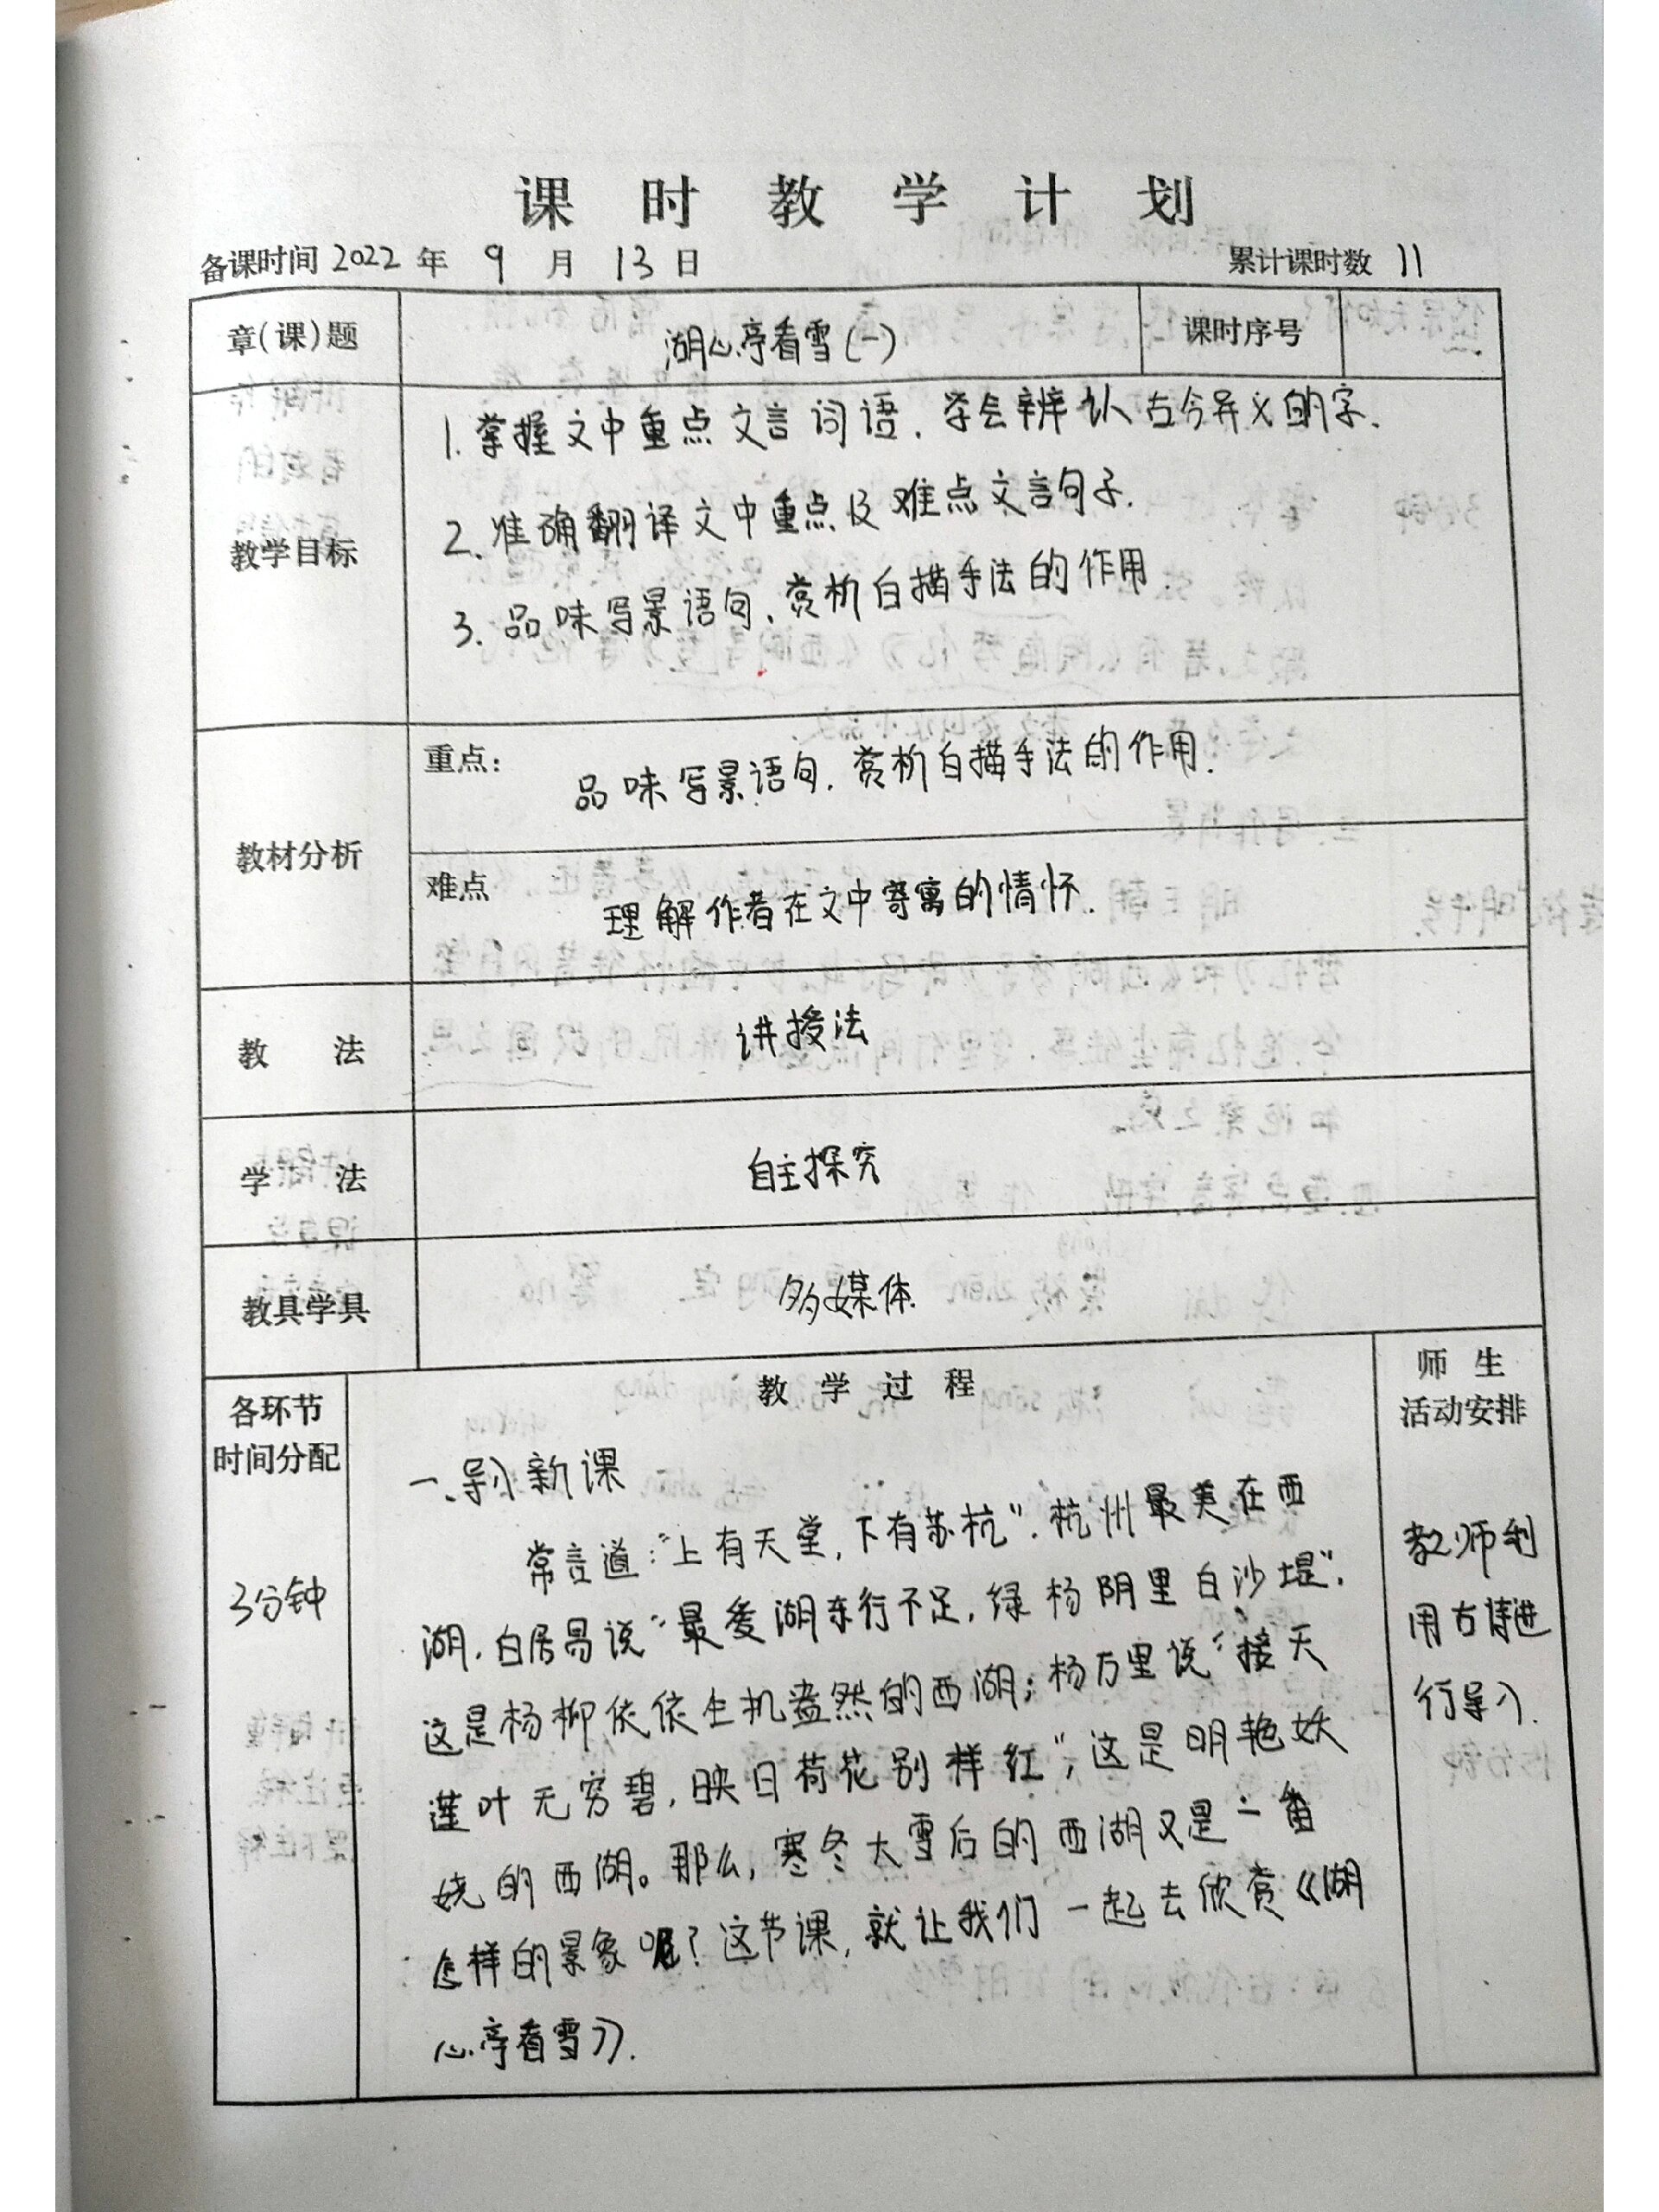 课时教学计划
备课时间 2022 年 9 月 13 日 累计课时数 11
章(课)题 湖心亭看雪(一) 课时序号
教学目标
1. 掌握文中重点文言词语，学会辨认古今异义的字.
2. 准确翻译文中重点及难点文言句子.
3. 品味写景语句，赏析白描手法的作用.
教材分析
重点:
品味写景语句，赏析白描手法的作用.
难点
理解作者在文中寄寓的情怀.
教 法 讲授法
学 法 自主探究
教具学具 多媒体
各环节
时间分配
教 学 过 程
师 生
活动安排
3分钟
一、导入新课
常言道:“上有天堂，下有苏杭”. 杭州最美在西
湖. 白居易说“最爱湖东行不足，绿杨阴里白沙堤”.
这是杨柳依依生机盎然的西湖；杨万里说“接天
莲叶无穷碧，映日荷花别样红”，这是明艳妖
娆的西湖。那么，寒冬大雪后的西湖又是一番
怎样的景象呢？这节课，就让我们一起去欣赏《湖
心亭看雪》.
教师利
用古诗进
行导入.